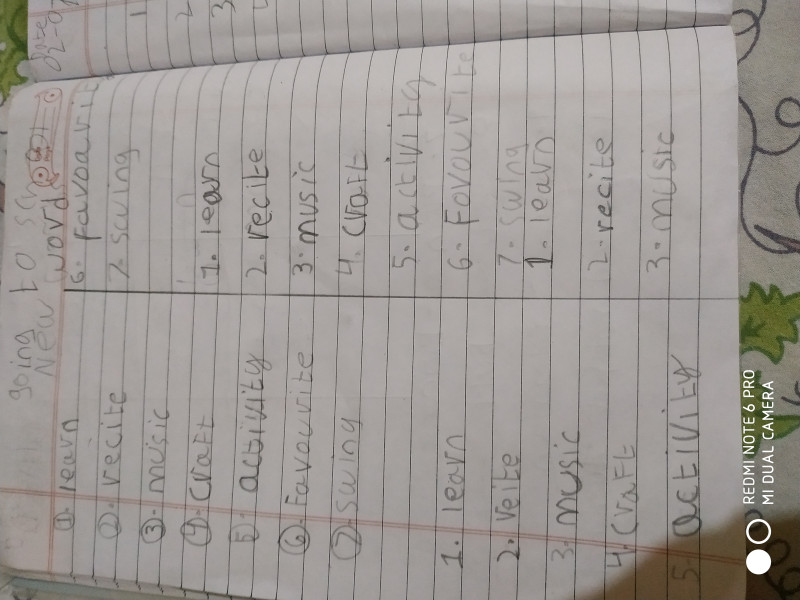 going to sc
New words
1. learn
2. recite
3. music
4. craft
5. activity
6. Favourite
7. swing
1. learn
2. reite
3. music
4. Craft
5. activity
6. favoarit
7. swing
1. learn
2. recite
3. music
4. craft
5. activity
6. Fovourite
7. swing
1. learn
2. recite
3. music
1
2
3
REDMI NOTE 6 PRO
MI DUAL CAMERA